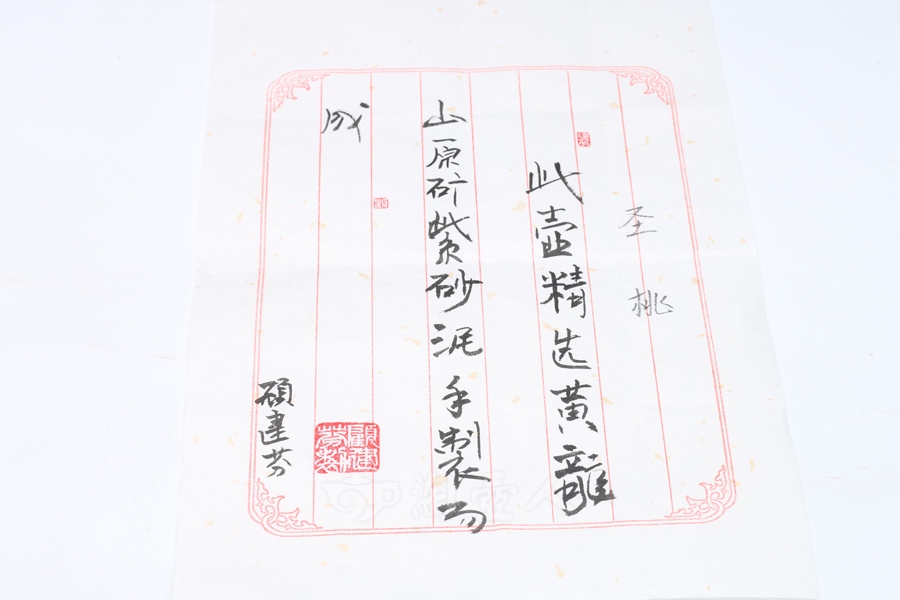 圣桃
此壶精选黄龍
山原矿紫砂泥手製而
成
顾建芬